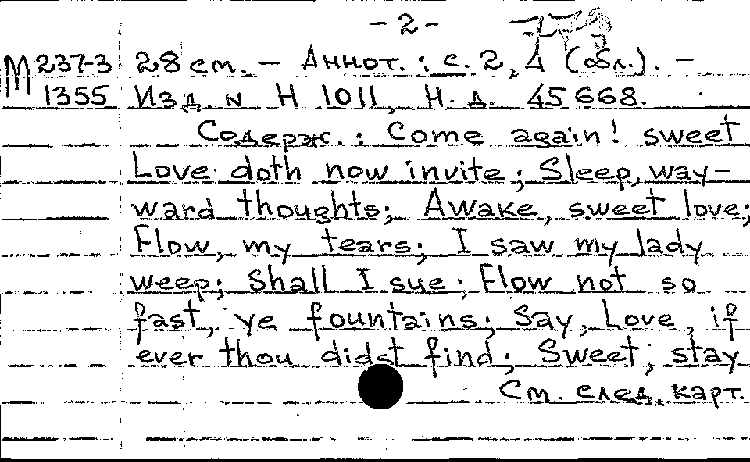 - 2 -
М 237-3 28 см. – Аннот.: с. 2, 4 (обл.). –
1355 Изд. N Н 1011, Н. д. 45668.
Содерж.: Come again! sweet
Love doth now invite; Sleep, way-
ward thoughts; Awake, sweet love;
Flow, my tears; I saw my lady
weep; Shall I sue; Flow not so
fast, ye fountains; Say, Love, if
ever thou didst find; Sweet, stay
См. след. карт.